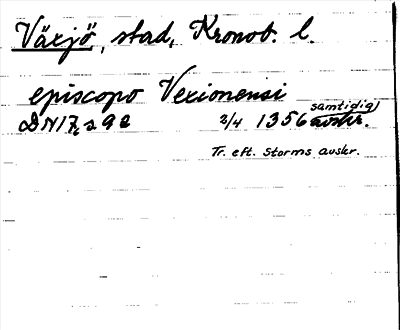 Växjö, stad, Kronob. l.
episcopo Vexionensi
samtidig)
DN 17, s 92 2/4 1356 avskr.
Tr. eft. Storms avskr.